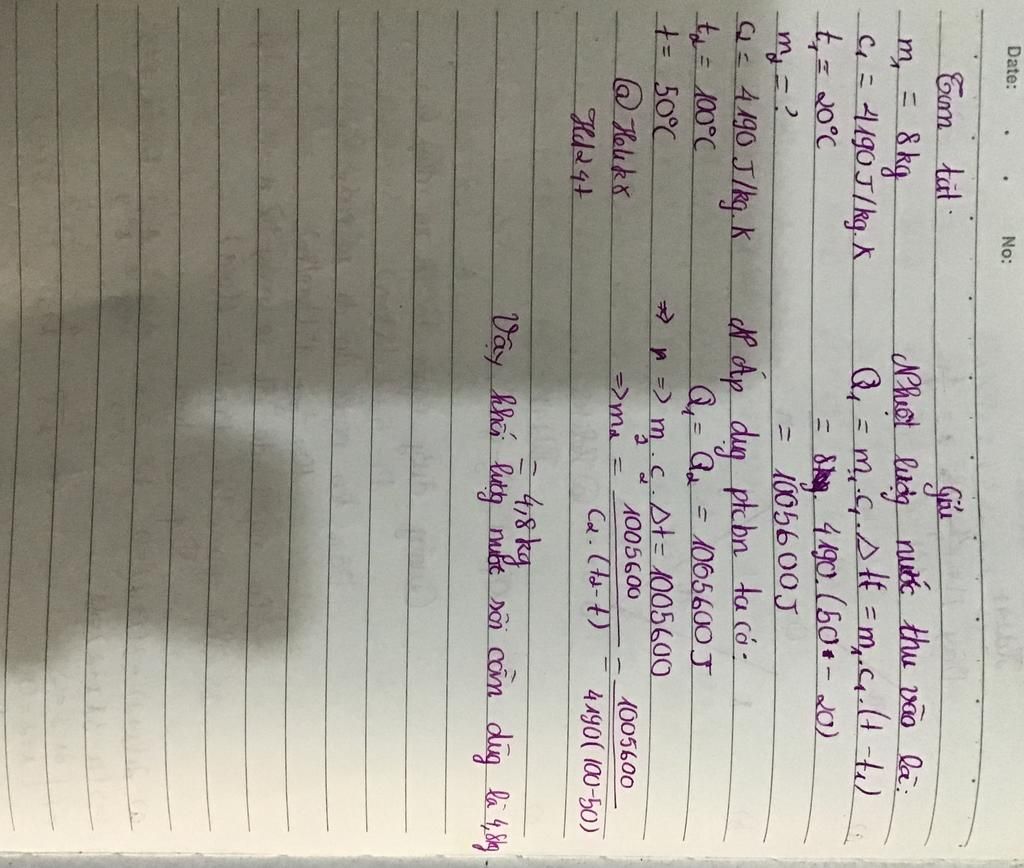 Date: No:
Tóm tắt.
m₁ = 8kg
c₁ = 4190J/kg.K
t₁ = 20°C
m₂ = ?
c₂ = 4190J/kg.K
t₂ = 100°C
t = 50°C
@Huks
Hd224t
Giải
Nhiệt lượng nước thu vào là:
Q₁ = m₁.c₁.Δt = m₁.c₁.(t - t₁)
= 8. 4190.(50 - 20)
= 1005600J
Áp dụg ptcbn ta có:
Q₁ = Q₂ = 1005600J
=> m₂.c₂.Δt = 1005600
=> m₂ = 1005600 / c₂.(t₂-t) = 1005600 / 4190(100-50)
= 4,8kg
Vậy khối lượg nước sôi cần dùg là 4,8kg